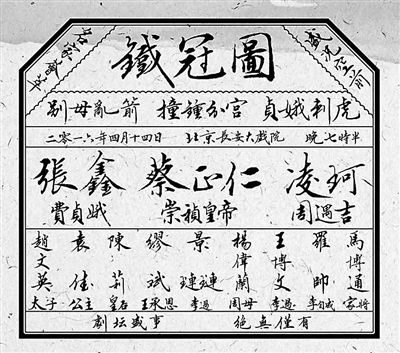 名家薈萃
鐵冠圖
盛況空前
別母亂箭 撞鐘分宮 貞娥刺虎
二零一六年四月十四日 北京長安大戲院 晚七時半
張鑫 蔡正仁 凌珂
費貞娥 崇禎皇帝 周遇吉
趙文英 袁佳 陳莉 繆斌 景璉璉 楊偉蘭 王博文 羅帥 馬博通
太子 公主 皇后 王承恩 李過 周母 李過 李自成 家將
劇坛盛事 絶無僅有